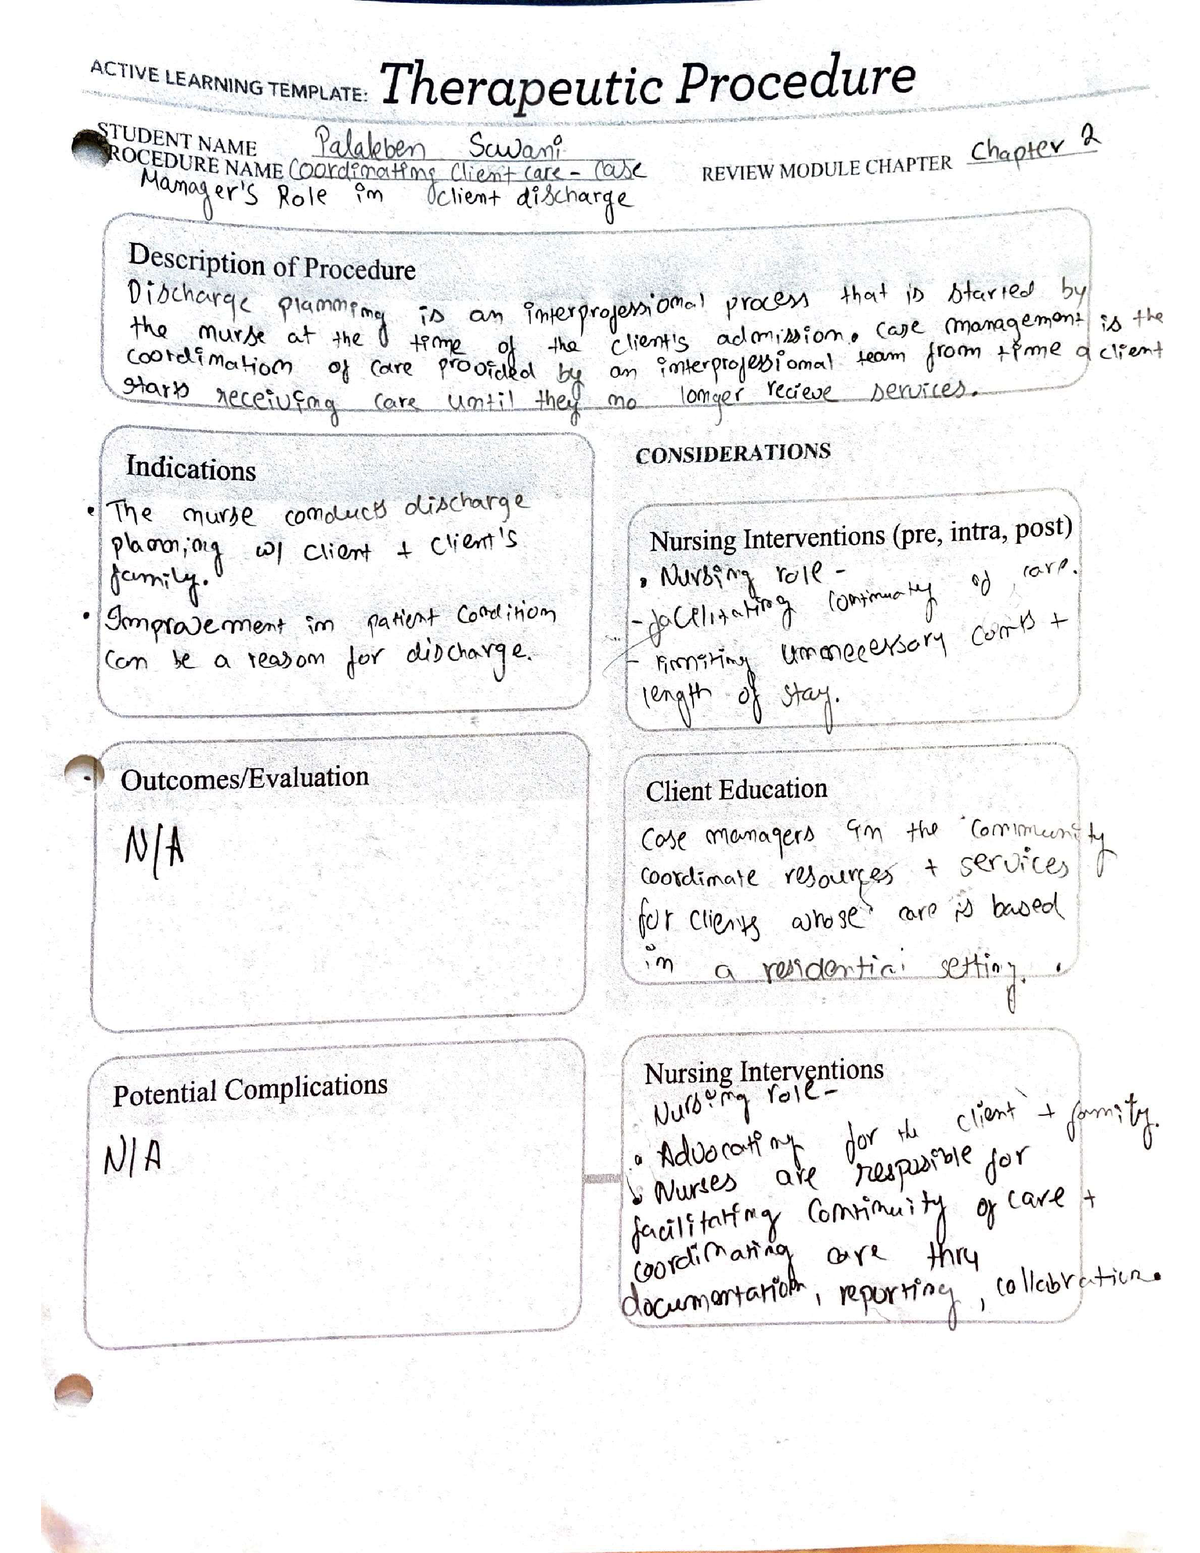 ACTIVE LEARNING TEMPLATE: Therapeutic Procedure
STUDENT NAME Palakben Savani
PROCEDURE NAME Coordinating Client care - Case
REVIEW MODULE CHAPTER Chapter 2
Manager's Role in client discharge
Description of Procedure
Discharge planning is an interprofessional process that is started by
the nurse at the time of the client's admission. Case management is the
coordination of care provided by an interprofessional team from time a client
starts receiving care until they no longer recieve services.
Indications
• The nurse conducts discharge
planning w/ client + client's
family.
• Improvement in patient condition
can be a reason for discharge.
CONSIDERATIONS
Nursing Interventions (pre, intra, post)
• Nursing role -
- facilitating continuity of care.
- limiting unnecessary costs +
length of stay.
Outcomes/Evaluation
N/A
Client Education
Case managers in the community
coordinate resources + services
for clients whose care is based
in a residential setting.
Potential Complications
N/A
Nursing Interventions
Nursing role -
• Advocating for the client + family.
↳ Nurses are resposible for
facilitating continuity of care +
coordinating care thru
documentation, reporting, collabration.